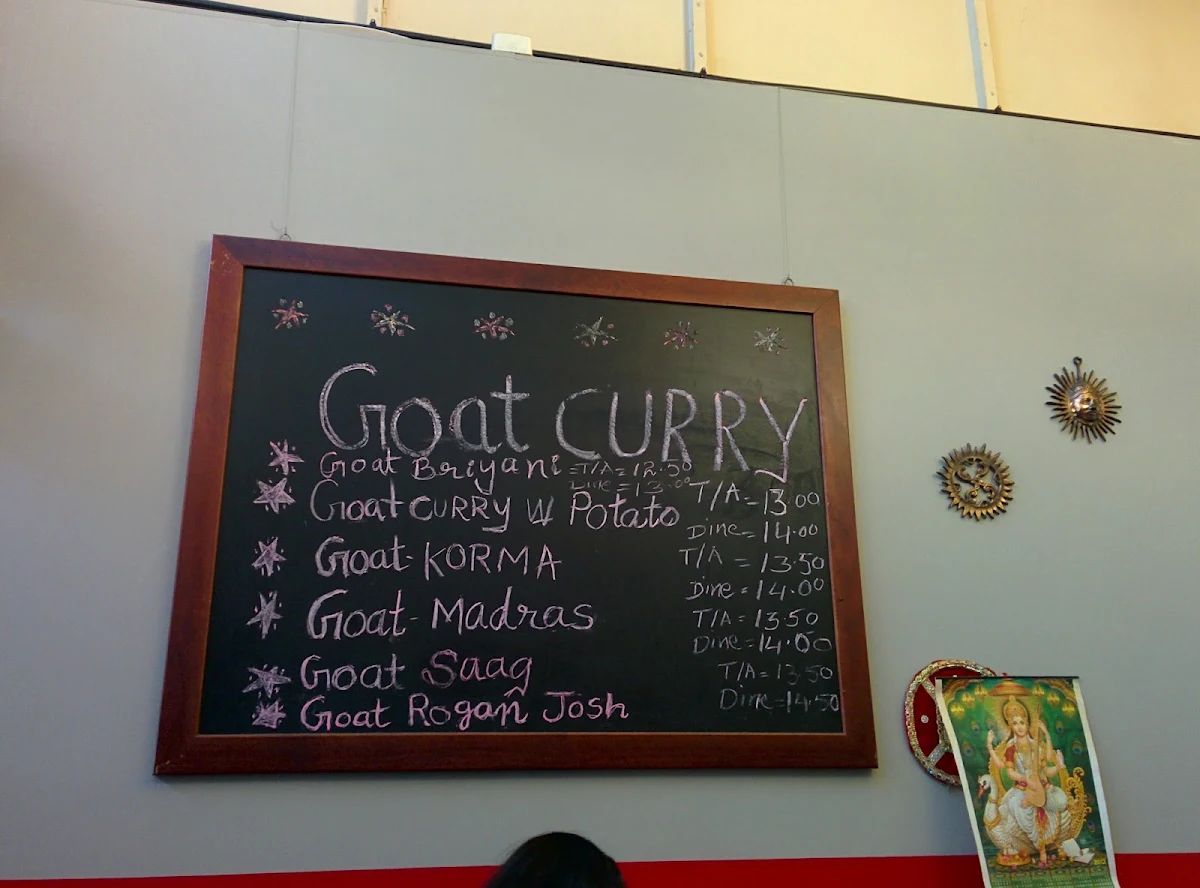 Goat CURRY
Goat Briyani =T/A=12.50
Dine =13.00
Goat CURRY W Potato T/A=13.00
Dine=14.00
Goat-KORMA T/A=13.50
Dine=14.00
Goat-Madras T/A=13.50
Dine=14.00
Goat Saag T/A=13.50
Goat Rogan Josh Dine=14.50